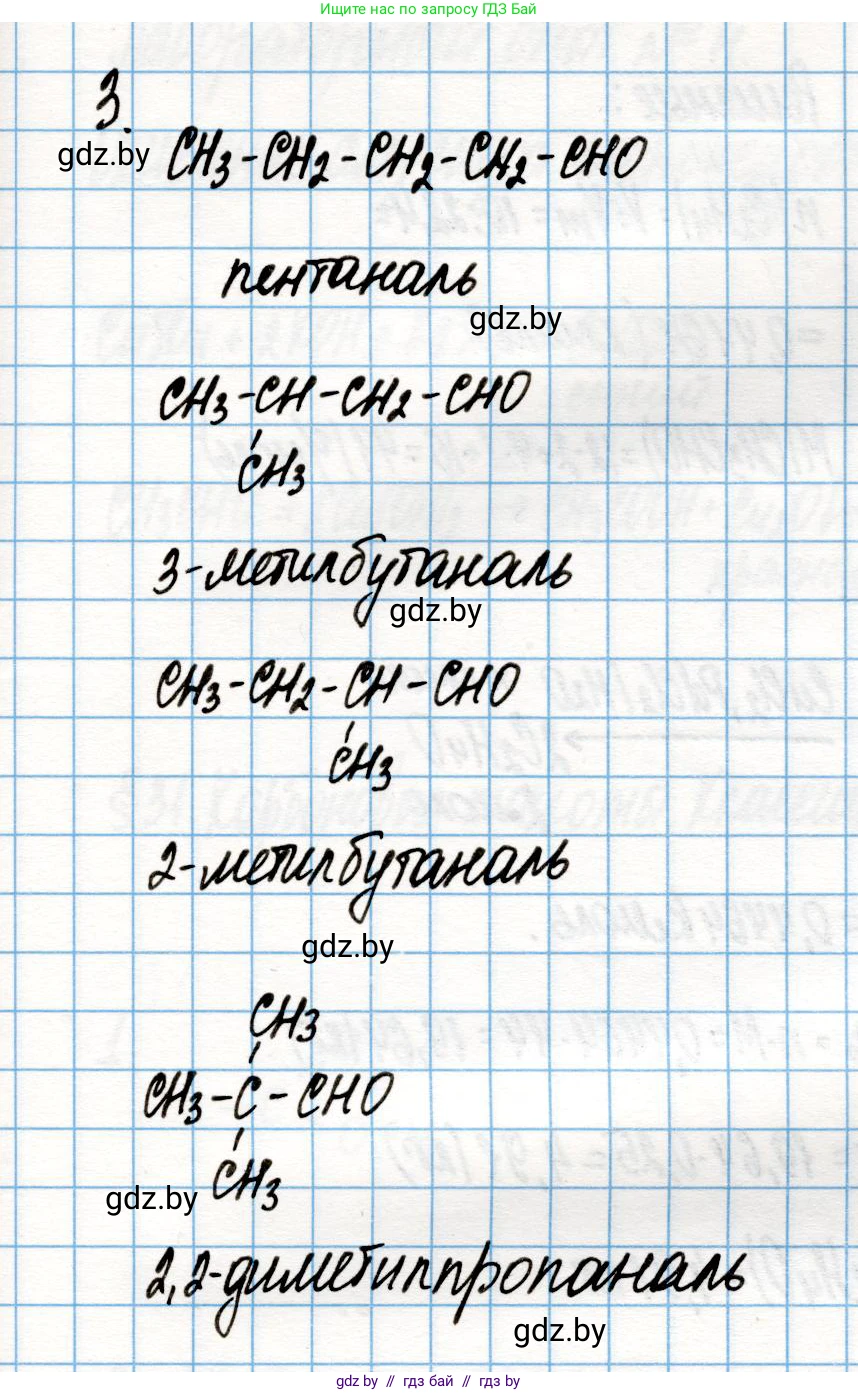 Ищите нас по запросу ГДЗ Бай
3.
gdz.by
CH3-CH2-CH2-CH2-CHO
пентаналь
gdz.by
CH3-CH-CH2-CHO
CH3
3-метилбутаналь
gdz.by
CH3-CH2-CH-CHO
CH3
2-метилбутаналь
gdz.by
CH3
CH3-C-CHO
CH3
gdz.by
2,2-диметилпропаналь
gdz.by
gdz.by // гдз бай // gdz.by